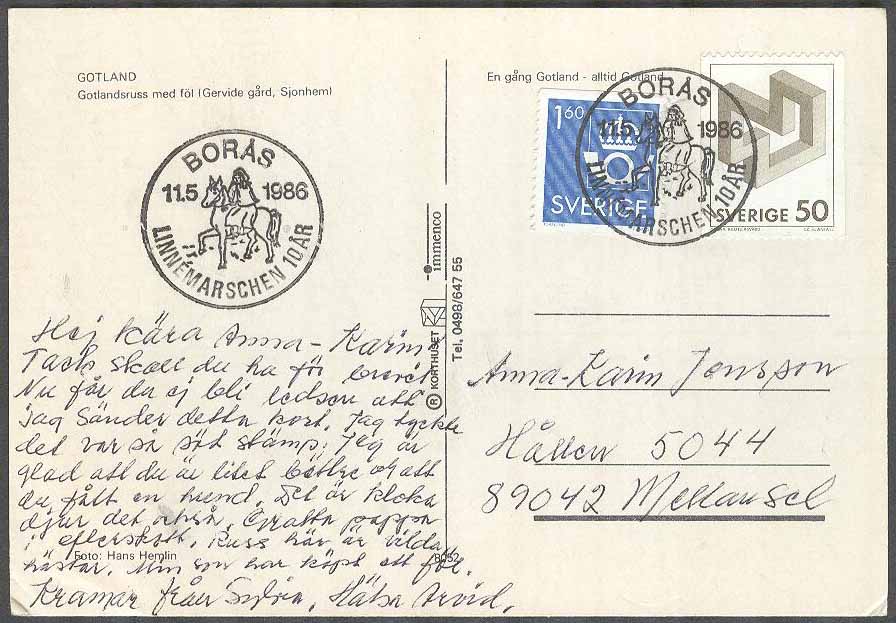 GOTLAND
Gotlandsruss med föl (Gervide gård, Sjonhem)
BORÅS
11.5 1986
LINNÉMARSCHEN 10 ÅR
Hej kära Anna-Karin
Tack skall du ha för brevet
Nu får du ej bli ledsen att
jag sänder detta kort. Jag tyckte
det var så söt stämp. Jag är
glad att du är litet bättre och att
du fått en hund. Det är kloka
djur det också. Gratta pappa
i efterskott. Russ här är vilda
hästar. Min son har köpt ett föl.
Kramar från Sylvia. Hälsa Arvid.
Foto: Hans Hemlin
8052
immenco
® KORTHUSET
Tel. 0498/647 55
En gång Gotland - alltid Gotland
1.60
SVERIGE
SVERIGE 50
BORÅS
11.5 1986
LINNÉMARSCHEN 10 ÅR
Anna-Karin Jonsson
Hållen 5044
89042 Mellansel